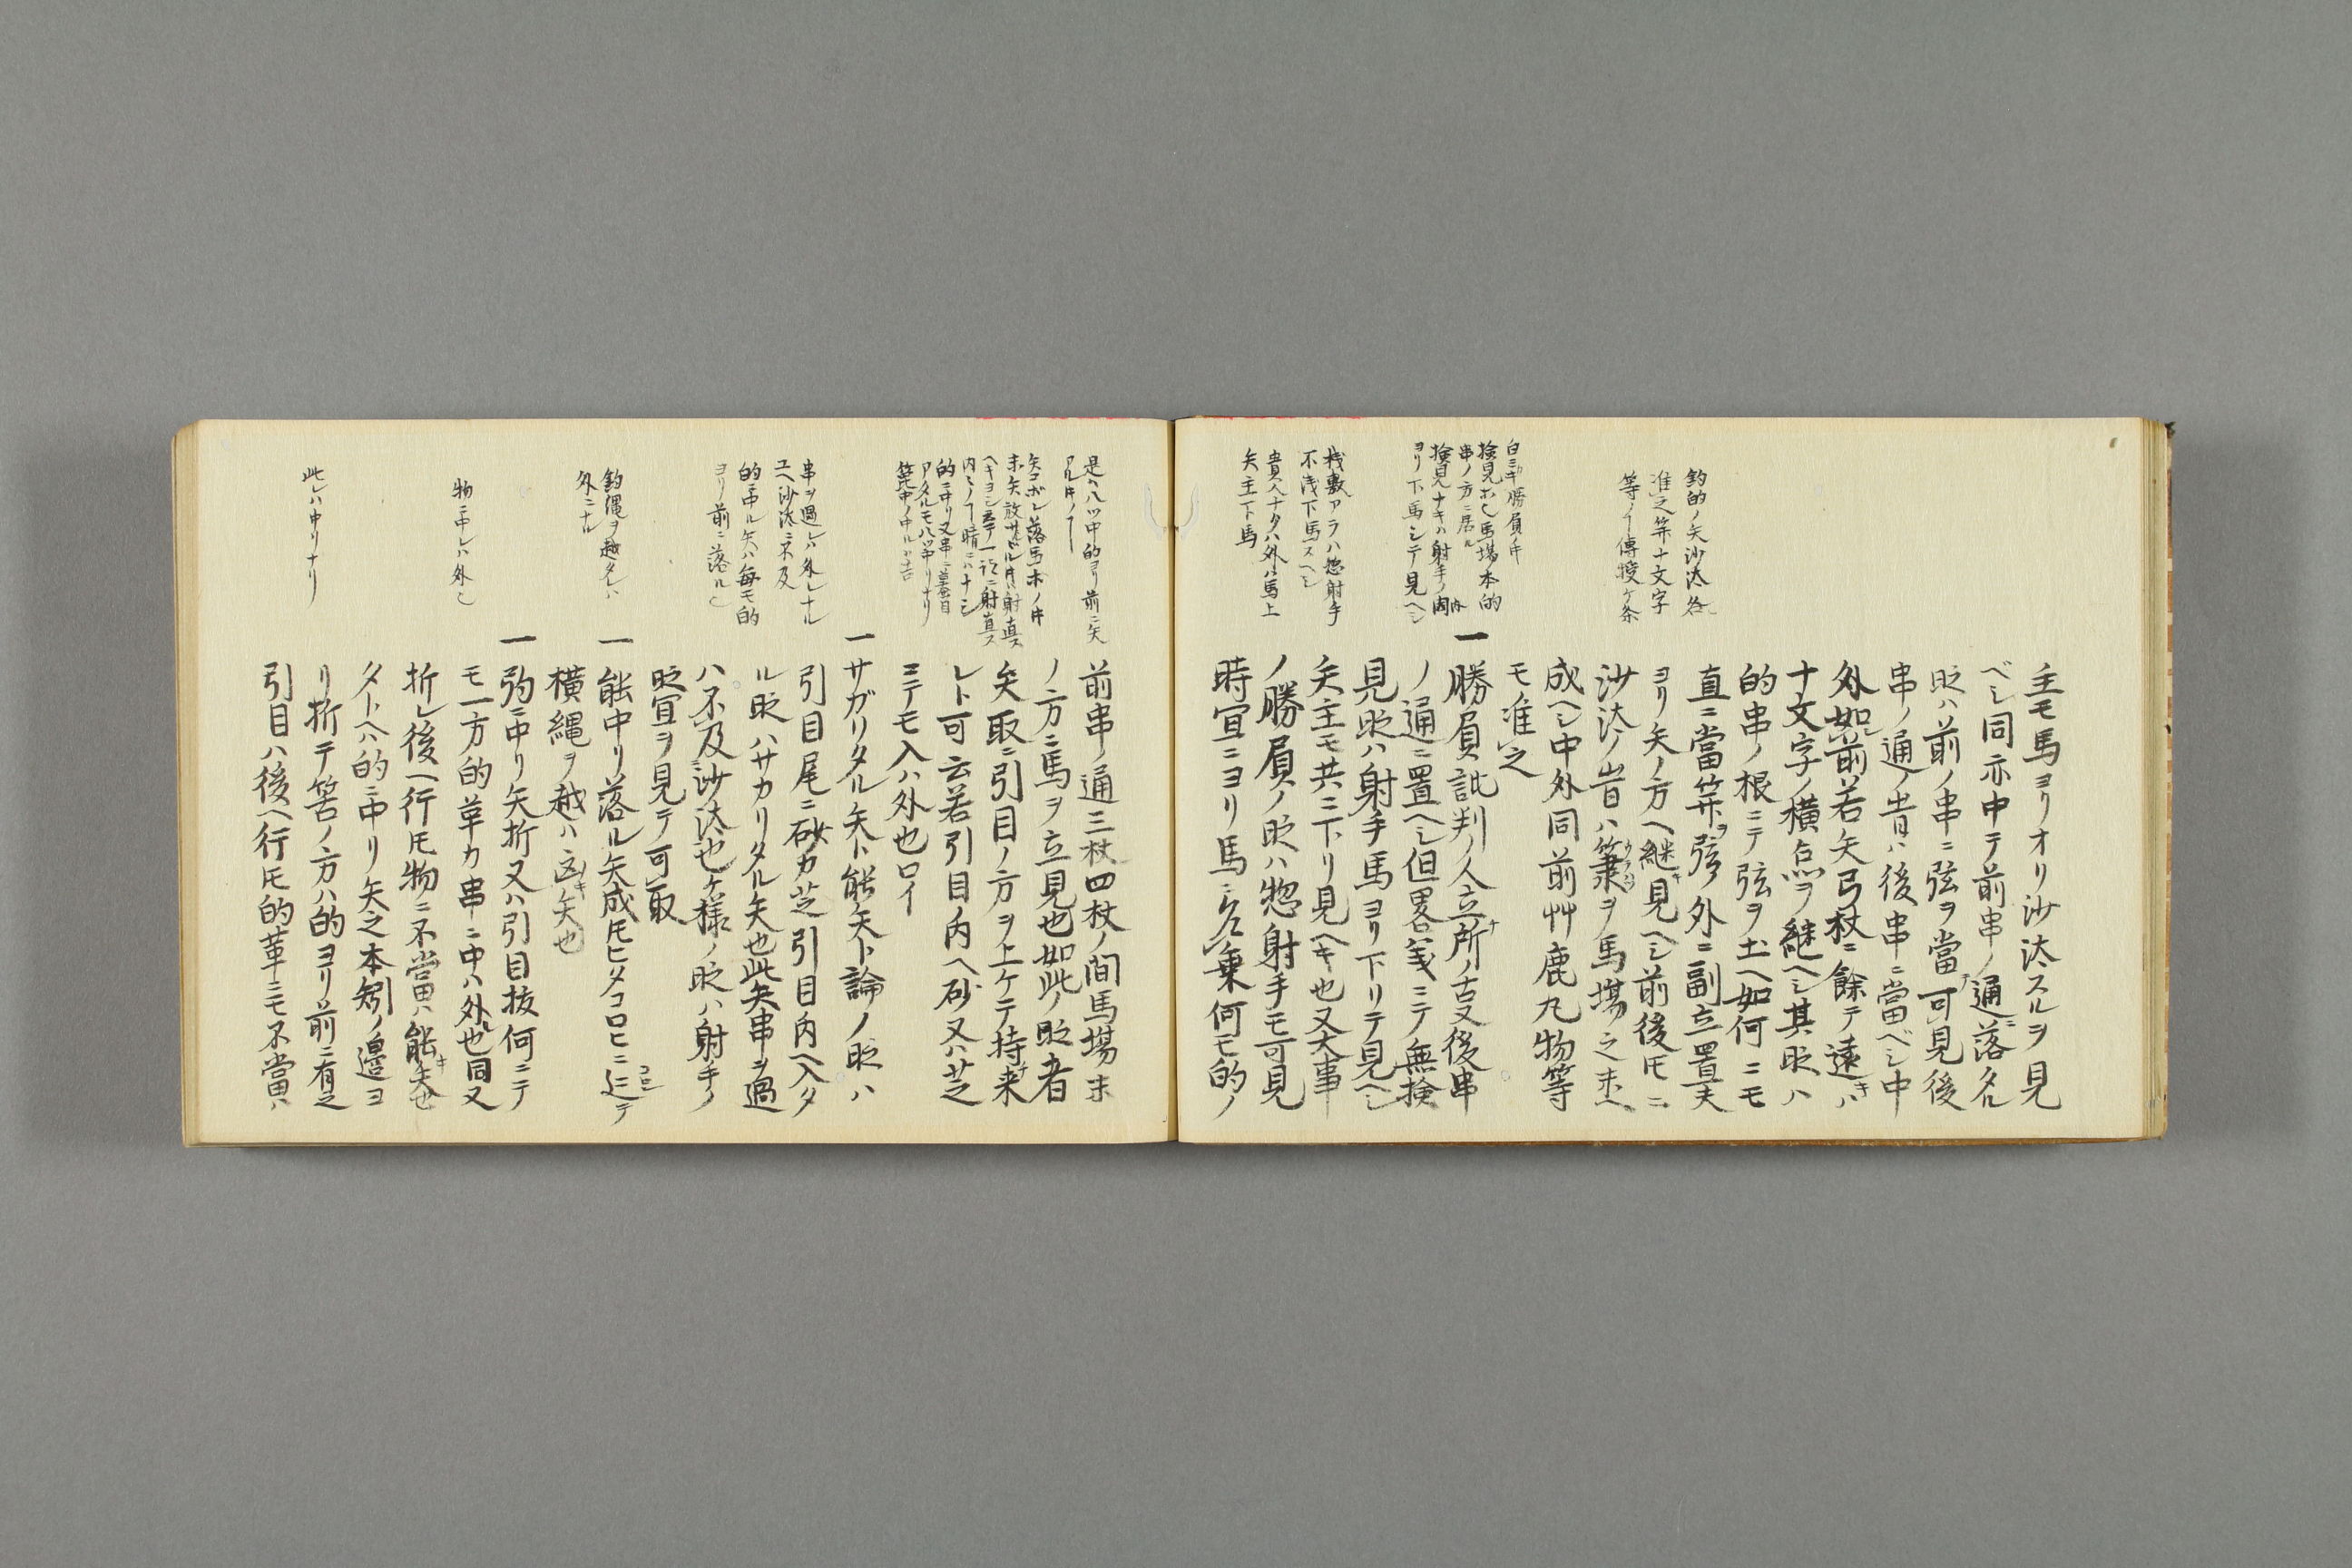 釣的ノ矢沙汰各
准之等十文字
等ノイ傳授ケ条
主モ馬ヨリオリ沙汰スルヲ見
ベシ同亦中テ前串ノ通落タル
眨ハ前ノ串ニ弦ヲ當可見後
串ノ通ノ昔ハ後串ニ當ベシ中
外如前若矢弓杖ニ餘テ遠キハ
十文字ノ横点ヲ継ヘシ其眨ハ
的串ノ根ニテ弦ヲ土ヘ如何ニモ
直ニ當筭ヲ弦ノ外ニ副立置夫
ヨリ矢ノ方ヘ継見ヘシ前後氏ニ
沙汰ノ昔ハ ヲ馬場之末ヘ
成ヘシ中外同前艸鹿丸物等
モ准之
勝負ノ
検見ホ也馬場本的
串ノ方ニ居ル
検見ナキハ射手ノ内
ヨリ下馬シテ見ヘシ
桟敷アラハ惣射手
不残下馬スヘシ
貴人ナタハ外ハ馬上
矢主下馬
一勝負批判ノ人立所ノ古又後串
ノ通ニ置ヘシ但畧義ニテ無検
見眨ハ射手馬ヨリ下リテ見ヘシ
矢主モ共ニ下リ見ヘキ也又大事
ノ勝負ノ眨ハ惣射手モ可見
時宜ニヨリ馬ニ乍乗何モ的ノ
是ハハツ中的ヨリ前ニ矢
アル
矢コボレ落馬ホノ
末矢放サドル 射直ス
ヘキヨシ
内ミノ丁晴ニハナシ
的ニ中リ又串ニ蟇目
アタルモハツ中リナリ
前串ノ通三杖四杖ノ間馬場末
ノ方ニ馬ヲ立見也如此ノ眨者
矢取ニ引目ノ方ヲ上ケテ持来
レト可云若引目ノ内ヘ砂又ハ芝
ニテモ入ハ外也ロイ
串ヲ過レハ外レナル
ユヘ沙汰ニ不及
的ニ中ル矢ハ毎モ的
ヨリ前ニ落ル也
一サガリタル矢ト能矢ト論ノ眨ハ
引目尾ニ砂カ芝引目内ヘ入タ
ル眨ハサカリタル矢也此矢串ヲ過
ハ不及沙汰也ケ様ノ眨ハ射手ノ
眨宜ヲ見テ可取
釣縄ヲ越タレハ
外ニナル
一能中リ落ル矢成氏ヒタコロヒニ テ
横縄ヲ越ハ 矢也
物ニ中レハ外也
一弥ニ中リ矢折又ハ引目抜何ニテ
モ一方的革カ串ニ中ハ外也同又
折レ後ヘ行氏物ニ不當ハ能矢也
タトヘハ的ニ中リ矢之本矧ノ邉ヨ
此レハ中リナリ
リ折テ筈ノ方ハ的ヨリ前ニ有之
引目ハ後ヘ行氏的革ニモ不當ハ